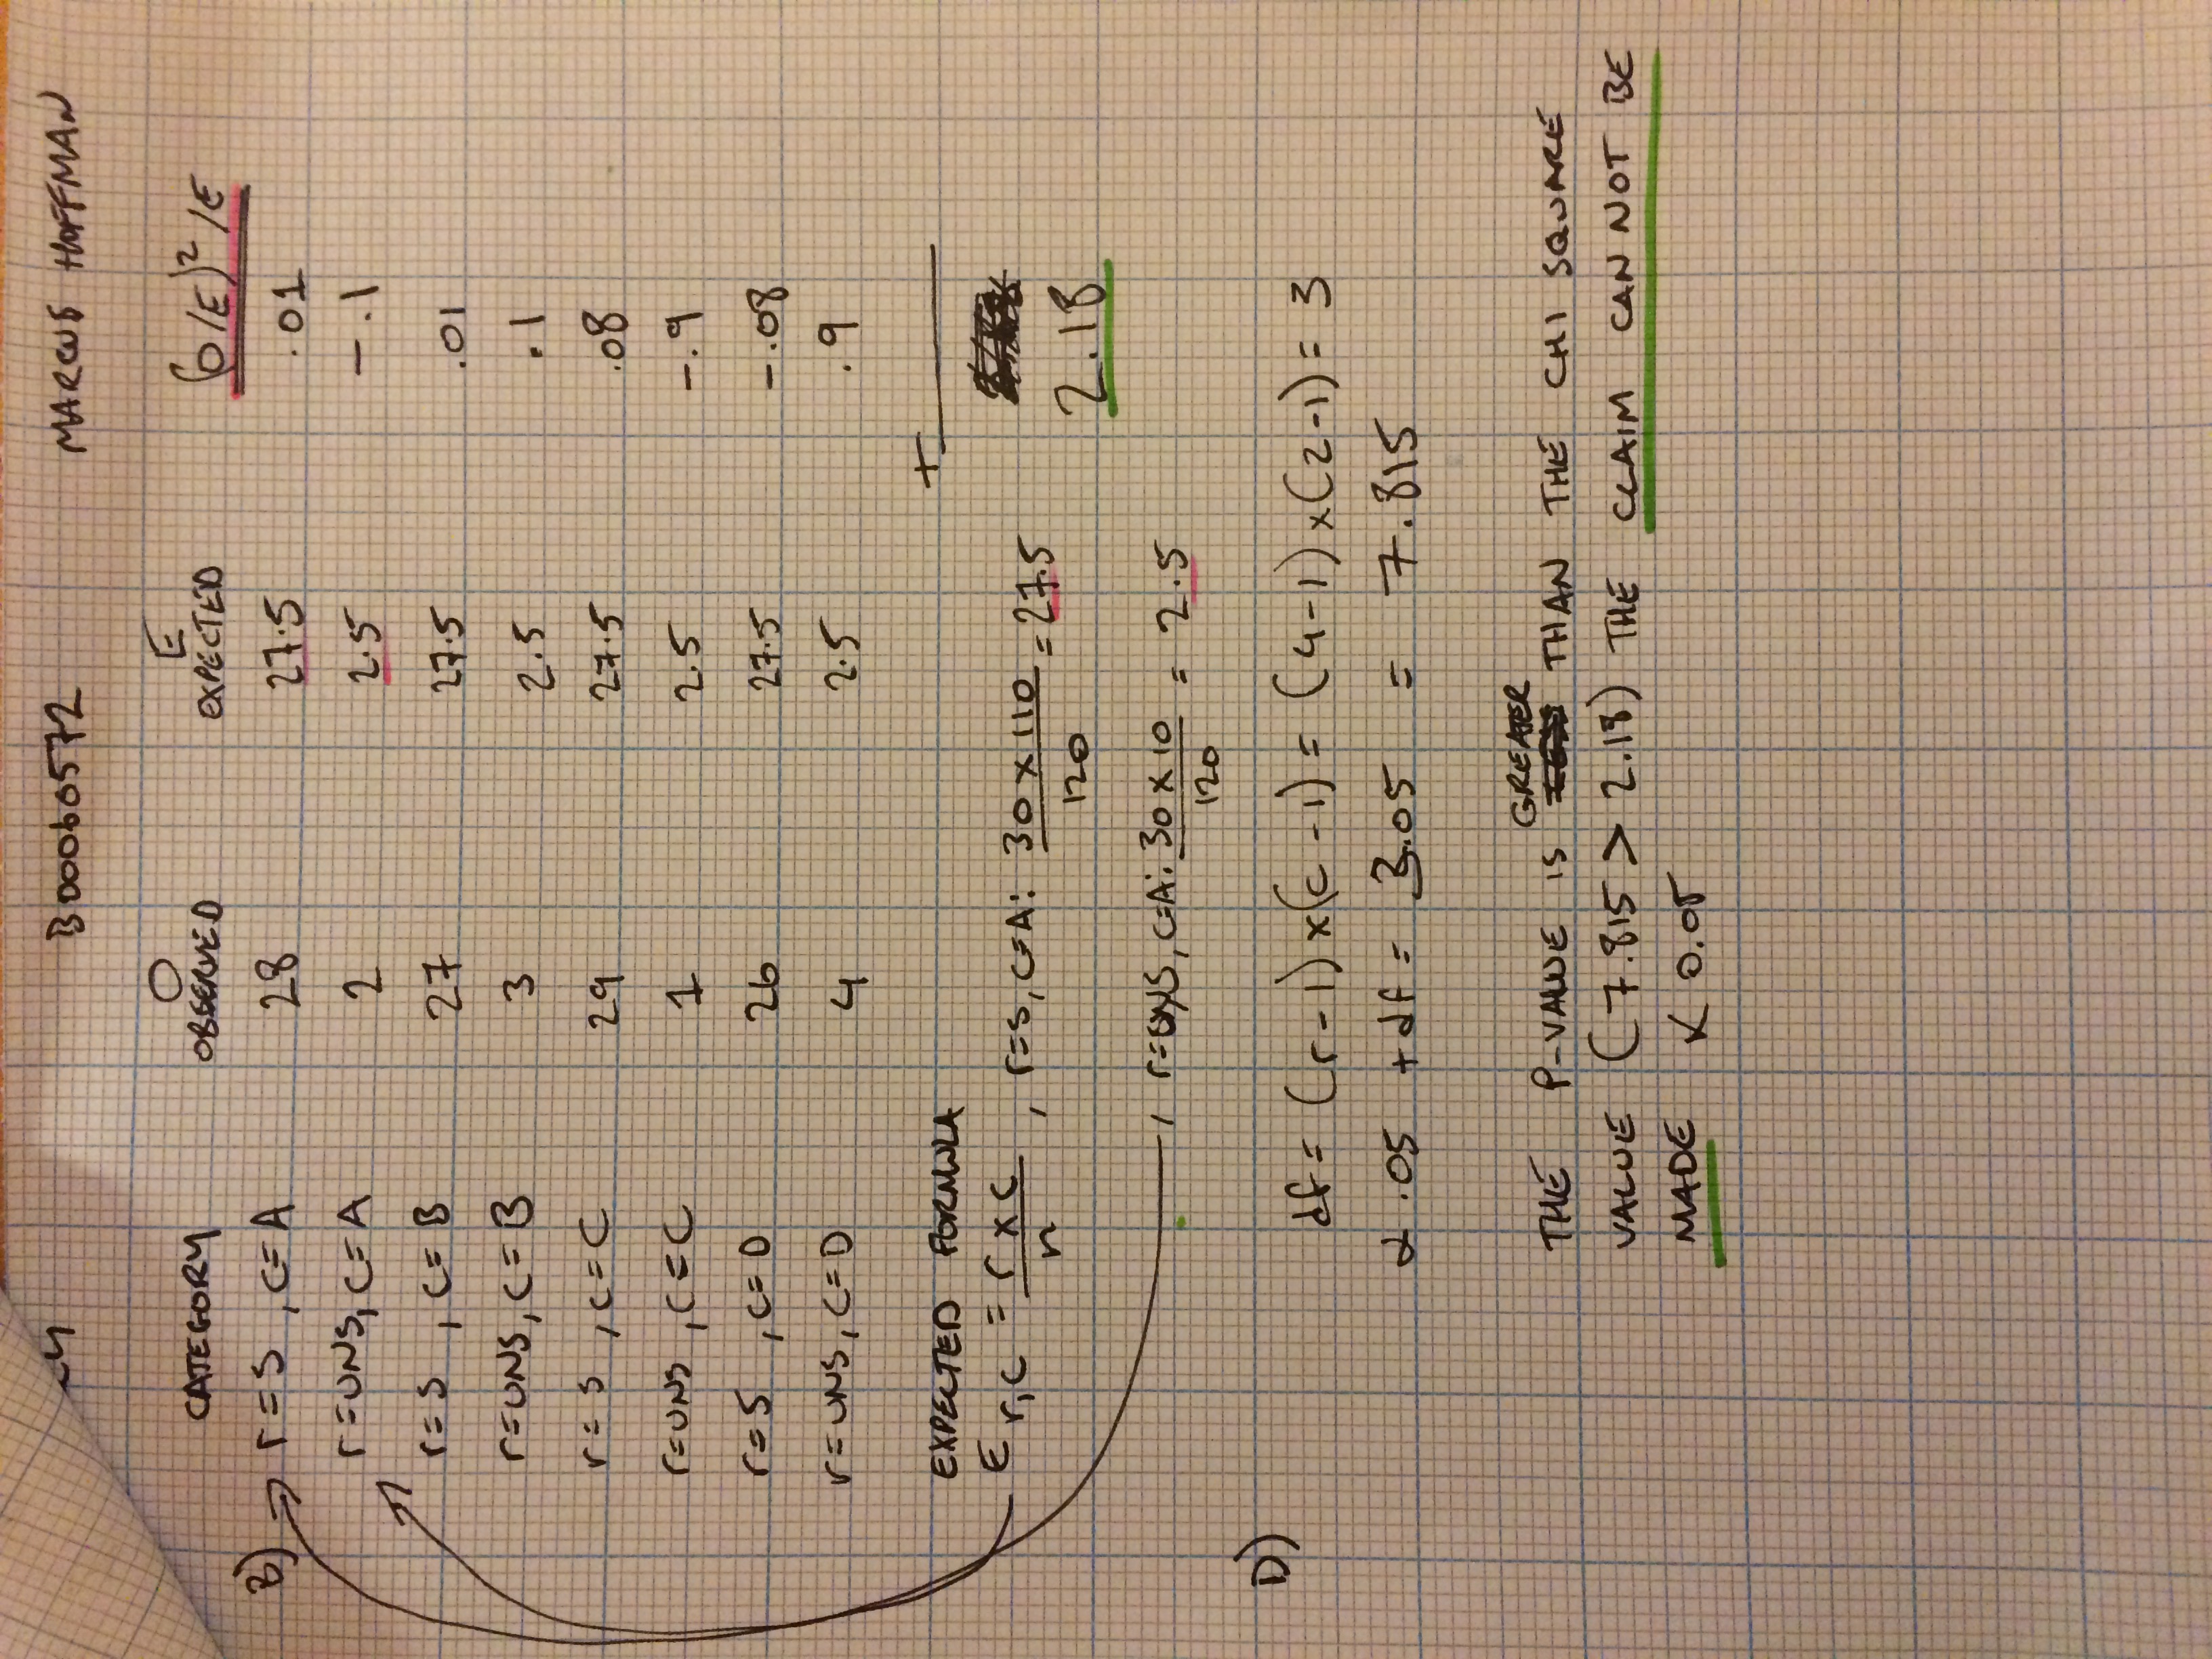 B00060572 MARCUS HOFFMAN
O E
CATEGORY OBSERVED EXPECTED (O/E)²/E
B) r=S , c=A 28 27.5 .01
r=UNS, c=A 2 2.5 -.1
r=S , c=B 27 27.5 .01
r=UNS, c=B 3 2.5 .1
r=S , c=C 29 27.5 .08
r=UNS , c=C 1 2.5 -.9
r=S , c=D 26 27.5 -.08
r=UNS, c=D 4 2.5 .9
+
EXPECTED FORMULA
E r,c = r x c / n , r=S, c=A: 30 x 110 / 120 = 27.5
2.18
, r=UNS, c=A: 30 x 10 / 120 = 2.5
D)
df = (r-1) x (c-1) = (4-1) x (2-1) = 3
α .05 + df = 3.05 = 7.815
GREATER
THE P-VALUE IS THAN THE CHI SQUARE
VALUE (7.815 > 2.18) THE CLAIM CAN NOT BE
MADE α 0.05